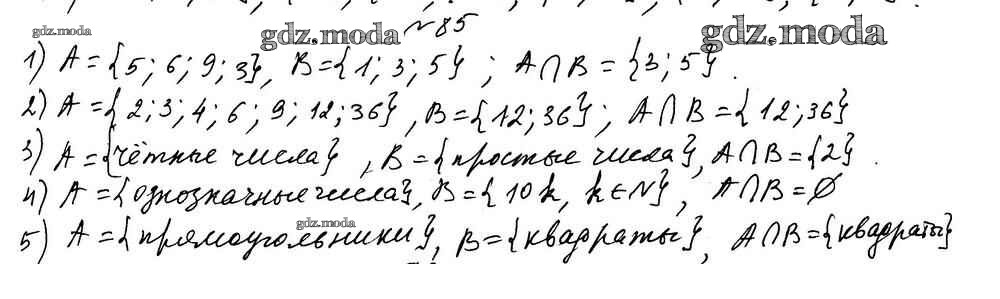 gdz.moda
gdz.moda
gdz.moda
№85
1) A={5; 6; 9; 3}, B={1; 3; 5}; A∩B={3; 5}.
2) A={2; 3; 4; 6; 9; 12; 36}, B={12; 36}; A∩B={12; 36}
3) A={чётные числа}, B={простые числа}, A∩B={2}.
4) A={однозначные числа}, B={10k, k∈N}, A∩B=∅
gdz.moda
5) A={прямоугольники}, B={квадраты}, A∩B={квадраты}